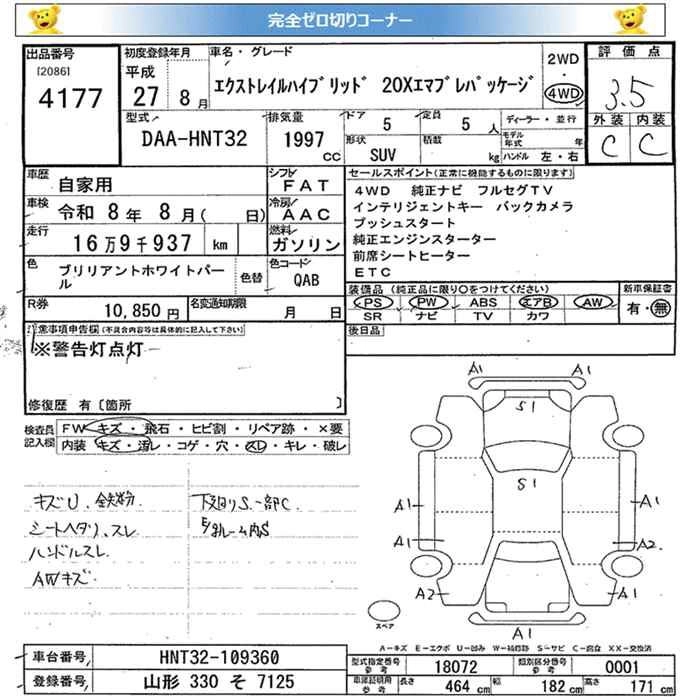 完全ゼロ切りコーナー
出品番号 初度登録年月 車名・グレード 2WD・4WD 評価点
[2086] 4177 平成 27 8月 エクストレイルハイブリッド 20Xエマブレパッケージ 3.5
型式 排気量 ドア 5 定員 5人 ディーラー・並行 外装 内装
DAA-HNT32 1997cc 形状 SUV 積載 kg モデル年式 年 C C
ハンドル 左・右
車歴 自家用 シフト FAT セールスポイント(正常に機能するものに限ります)
車検 令和 8年 8月( 日) 冷房 AAC 4WD 純正ナビ フルセグTV
インテリジェントキー バックカメラ
走行 16万9千937 km 燃料 ガソリン プッシュスタート
純正エンジンスターター
色 ブリリアントホワイトパール 色替 色コード QAB 前席シートヒーター
ETC
R券 10,850円 名変通知期限 月 日 装備品(純正品に限り○をつけてください) 新車保証書
PS PW ABS エアB AW 有・無
SR ナビ TV カワ
注意事項申告欄(不具合内容等は具体的に記入して下さい) 後日品
※警告灯点灯
修復歴 有〔箇所 〕
検査員記入欄 FW キズ・飛石・ヒビ割・リペア跡・×要
内装 キズ・汚レ・コゲ・穴・スレ・キレ・破レ
A1 A1
S1
S1
キズU、鉄粉 下廻りS、一部C
シートヘタリ、スレ E/gルーム内S
ハンドルスレ
AWキズ
A1 A1
A1 A2
A2 A1
A1
スペア
A-キズ E-エクボ U-凹み W-補修跡 S-サビ C-腐食 XX-交換済
車台番号 HNT32-109360 型式指定番号 参考 18072 類別区分番号 参考 0001
登録番号 山形 330 そ 7125 車庫証明用 参考 長さ 464cm 幅 182cm 高さ 171cm